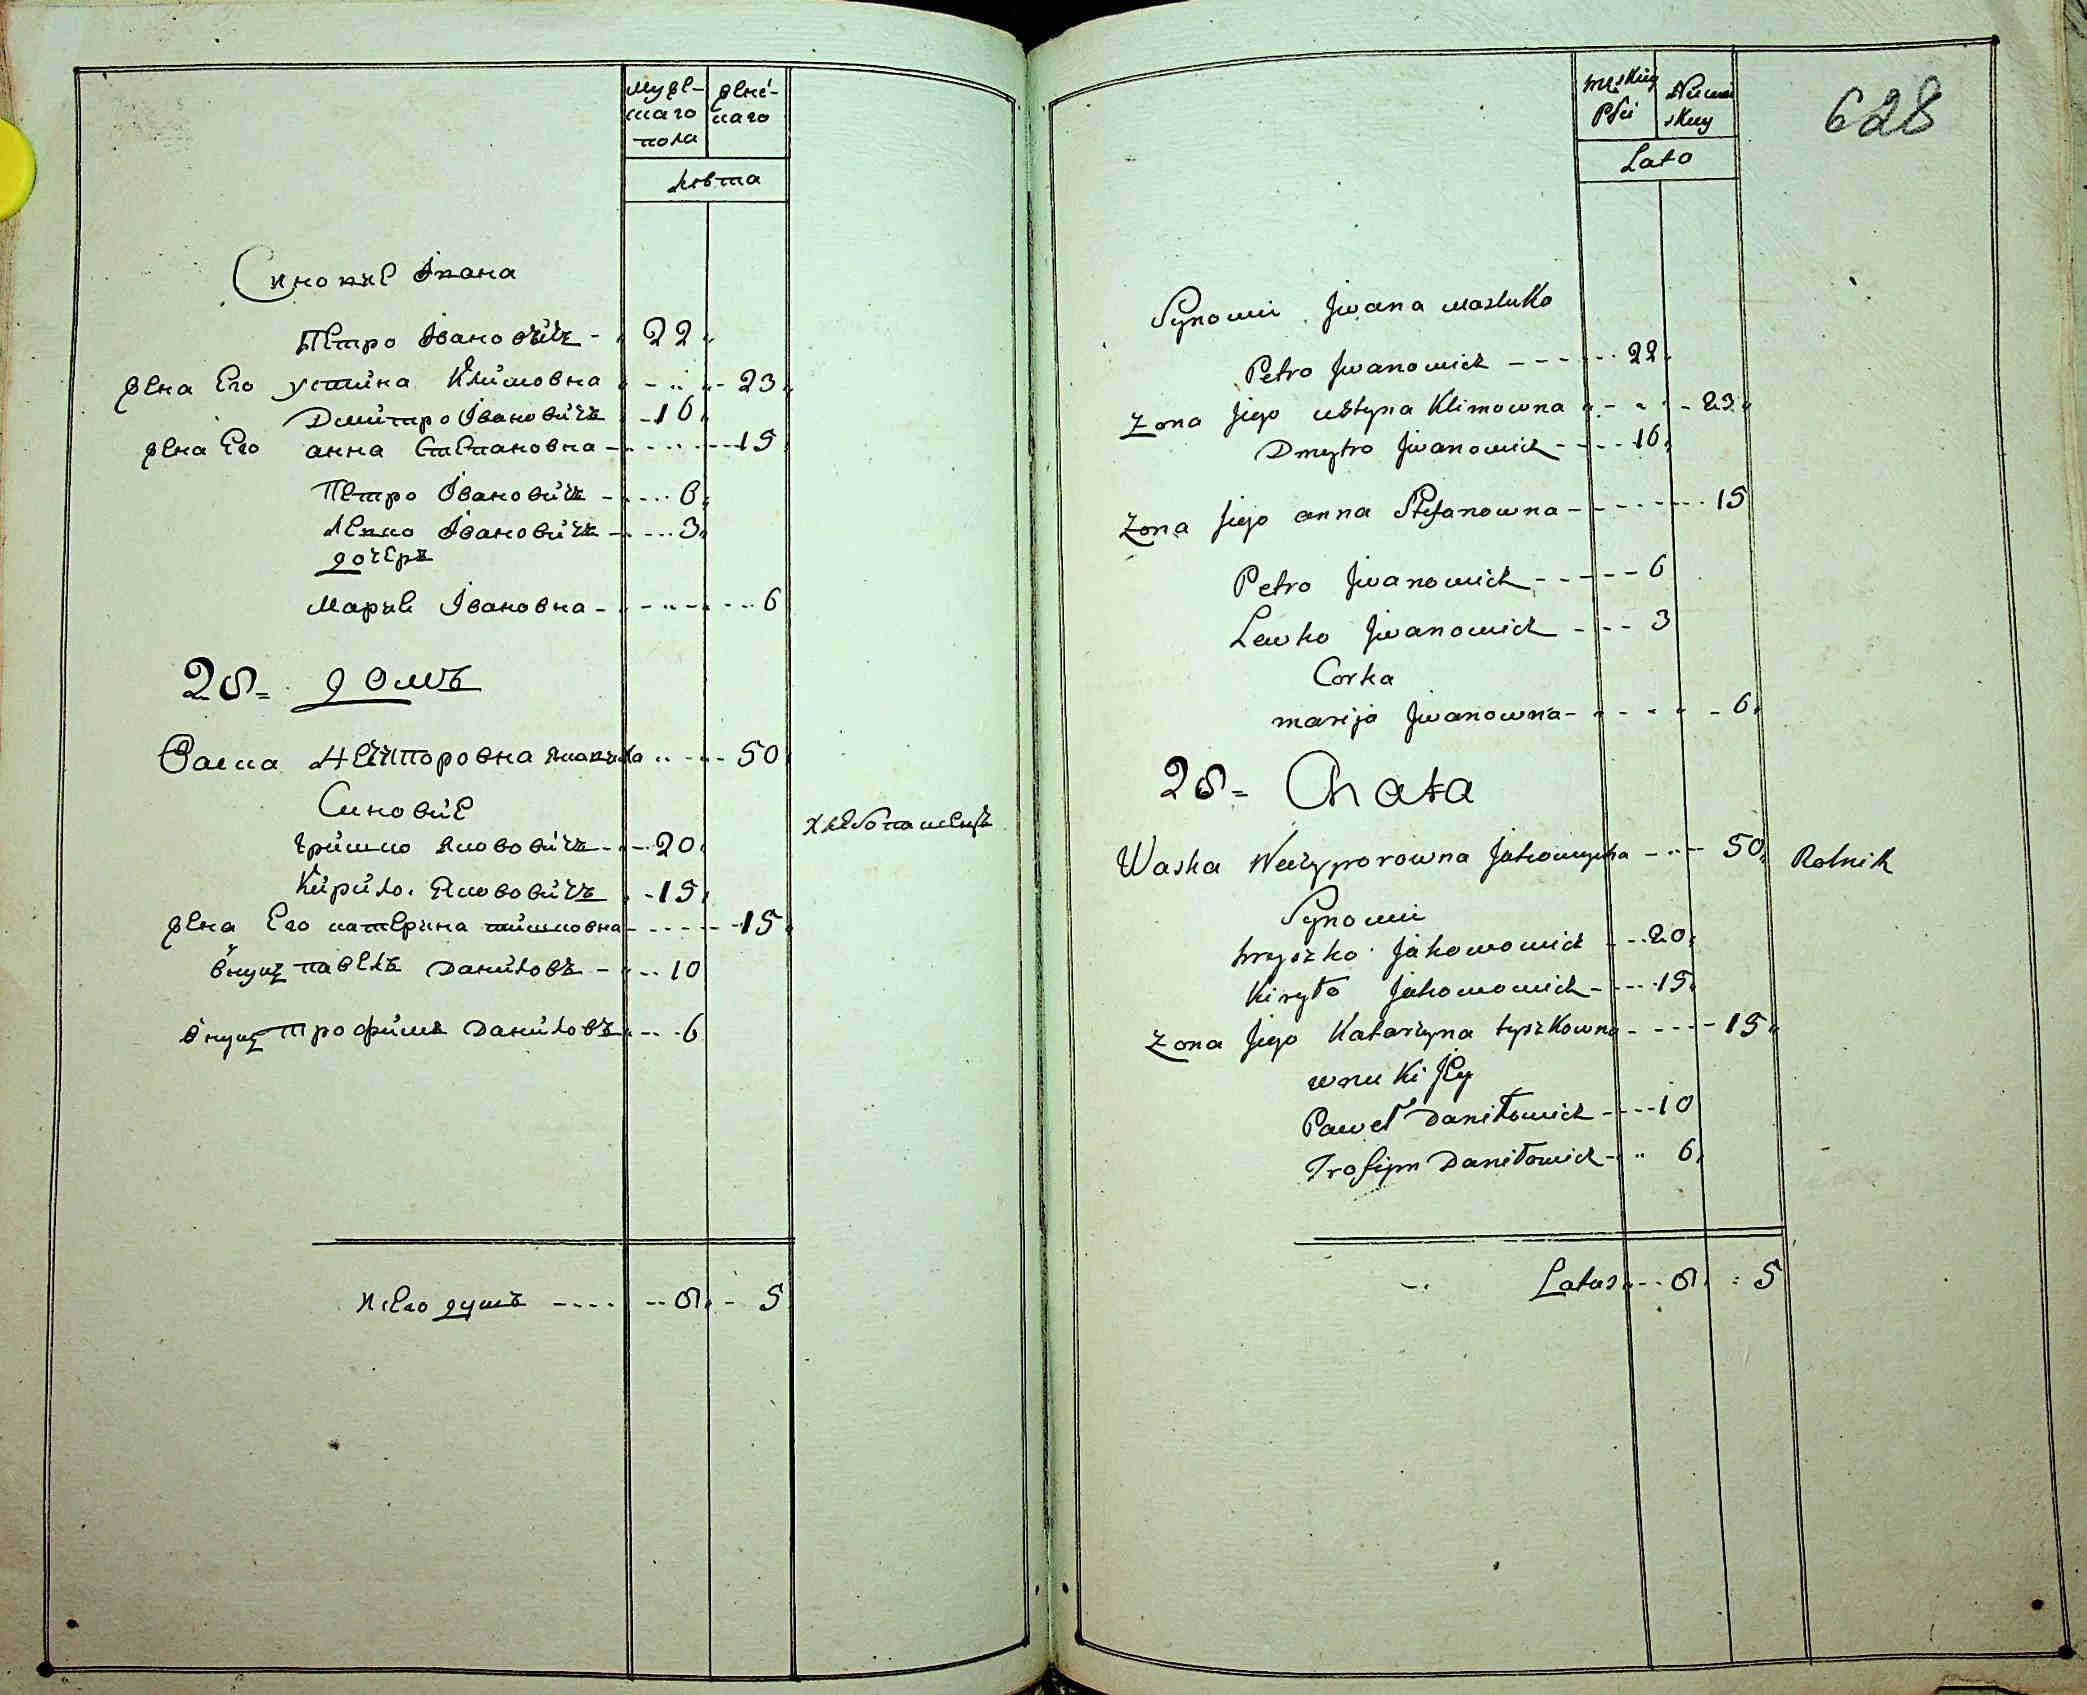 Мужескаго пола
женскаго
Лѣта
Синовие Ивана
Петро Івановичъ - 22
жена Его Устина Климовна - 23
Дмитро Івановичъ - 16
жена Его анна Степановна - 15
Петро Івановичъ - 6
Левко Івановичъ - 3
дочерь
Мария Івановна - 6
28 = домъ
Васка Нечипоровна Яковиха - 50
Синовие
хлебопашецъ
гришко Якововичъ - 20
Кирило Якововичъ - 15
жена Его катерина тишковна - 15
внукъ павелъ Даниловъ - 10
внукъ трофимъ Даниловъ - 6
всего душъ - 8 - 5
628
męskiey Płci
Niewieskiey
Lato
Synowie Jwana wasluko
Petro Jwanowicz - 22
Żona Jego ustyna Klimowna - 23
Dmytro Jwanowicz - 16
Żona Jego anna Stefanowna - 15
Petro Jwanowicz - 6
Lewko Jwanowicz - 3
Corka
marija Jwanowna - 6
28 = Chata
Waska Neczyporowna Jakowycha - 50 Rolnik
Synowie
hryszko Jakowowicz - 20
Kiryło Jakowowicz - 15
Żona Jego Katarzyna tyszkowna - 15
wnuki Jey
Paweł Daniłowicz - 10
Trofym Daniłowicz - 6
Latus - 8 : 5